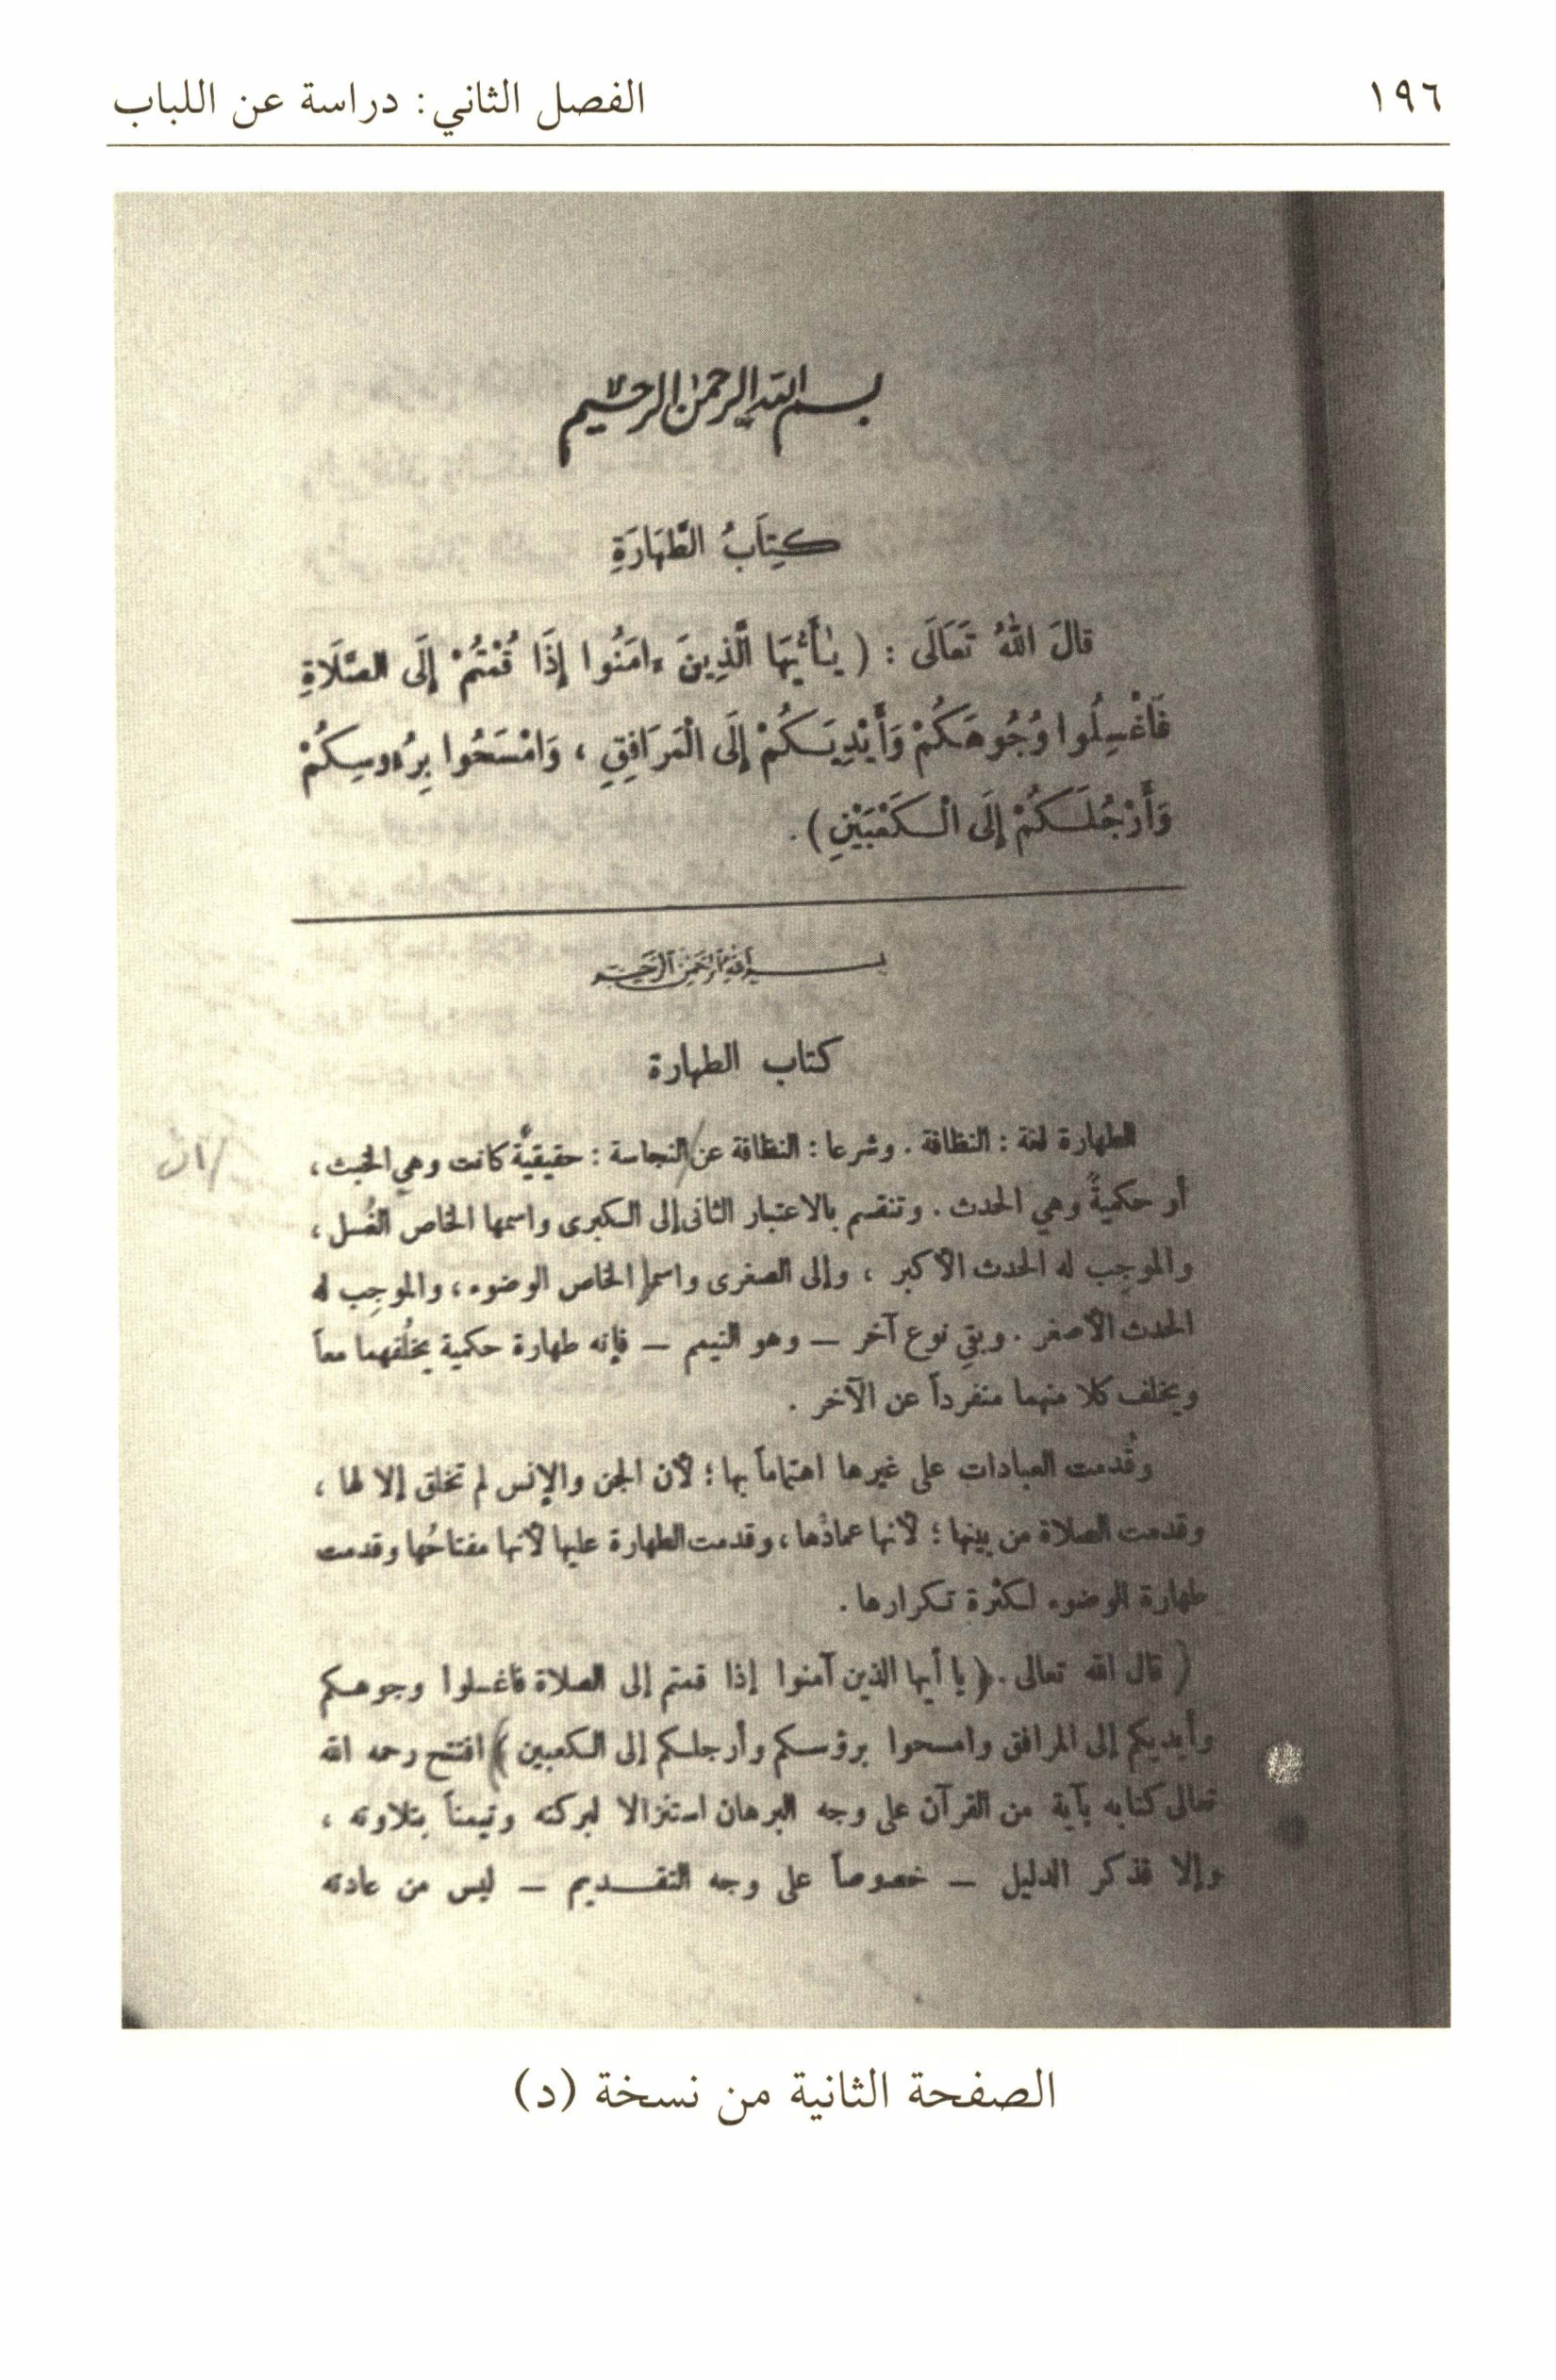 ١٩٦
الفصل الثاني: دراسة عن اللباب
بسم الله الرحمن الرحيم
كِتَابُ الطَّهَارَةِ
قَالَ اللهُ تَعَالَى : ( يَٰأَيُّهَا الَّذِينَ ءامَنُوا إِذَا قُمْتُمْ إِلَى الصَّلَاةِ
فَاغْسِلُوا وُجُوهَكُمْ وَأَيْدِيَكُمْ إِلَى الْمَرَافِقِ ، وَامْسَحُوا بِرُءوسِكُمْ
وَأَرْجُلَكُمْ إِلَى الْكَعْبَيْنِ ) .
بسم الله الرحمن الرحيم
كتاب الطهارة
الطهارة لغة : النظافة . وشرعا : النظافة عن النجاسة : حقيقيةً كانت وهي الخبث ،
أو حكميةً وهي الحدث . وتنقسم بالاعتبار الثانى إلى الكبرى واسمها الخاص الغُسل ،
والموجِب له الحدث الأكبر ، وإلى الصغرى واسمها الخاص الوضوء ، والموجِب له
الحدث الأصغر . وبقي نوع آخر — وهو التيمم — فإنه طهارة حكمية يخلُفهما معاً
ويخلف كلا منهما منفرداً عن الآخر .
وقُدمت العبادات على غيرها اهتماماً بها ؛ لأن الجن والإنس لم تخلق إلا لها ،
وقدمت الصلاة من بينها ؛ لأنها عمادُها ، وقدمت الطهارة عليها لأنها مفتاحُها وقدمت
طهارة الوضوء لكثرة تكرارها .
( قال الله تعالى . ﴿ يا أيها الذين آمنوا إذا قمتم إلى الصلاة فاغسلوا وجوهكم
وأيديكم إلى المرافق وامسحوا برؤسكم وأرجلكم إلى الكعبين ﴾) افتتح رحمه الله
تعالى كتابه بآية من القرآن على وجه البرهان استنزالا لبركته وتيمناً بتلاوته ،
وإلا فذكر الدليل — خصوصاً على وجه التقديم — ليس من عادته
الصفحة الثانية من نسخة (د)